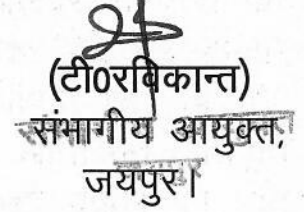 (टी0रविकान्त)
संभागीय आयुक्त,
जयपुर।